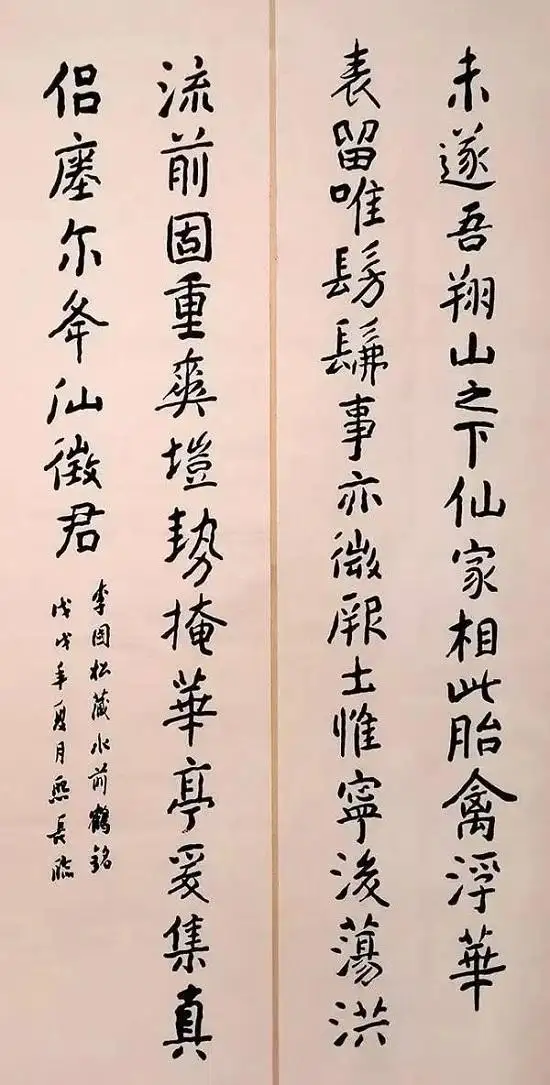 未遂吾翔山之下仙家相此胎禽浮華
表留唯髣髴事亦微厥土惟寧後蕩洪
流前固重爽塏勢掩華亭爰集真
侣瘞尔夅山徵君
李国松藏水前鶴銘
戊戌年夏月熙長臨